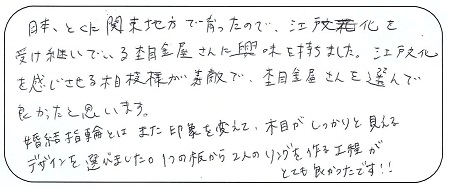 日本、とくに関東地方で育ったので、江戸文化を
受け継いでいる杢目金屋さんに興味を持ちました。江戸文化
を感じさせる木目模様が素敵で、杢目金屋さんを選んで
良かったと思います。
婚結指輪とはまた印象を変えて、木目がしっかりと見える
デザインを選びました。1つの板から2人のリングを作る工程が
とても良かったです!!